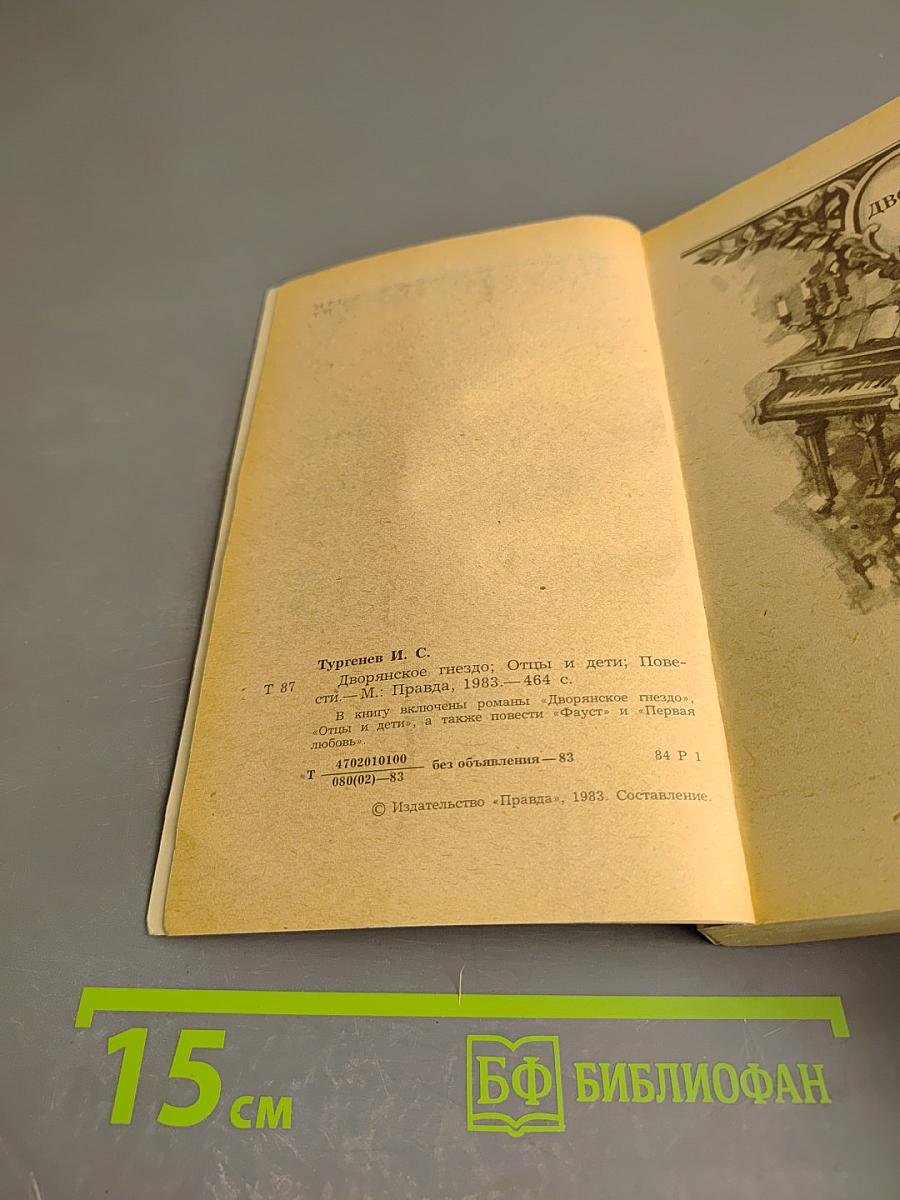 Тургенев И. С.
Т 87
Дворянское гнездо; Отцы и дети; Пове-
сти.—М.: Правда, 1983.—464 с.
В книгу включены романы «Дворянское гнездо»,
«Отцы и дети», а также повести «Фауст» и «Первая
любовь».
Т 4702010100 без объявления—83 84 Р 1
080(02)—83
© Издательство «Правда», 1983. Составление.
15 см
БФ БИБЛИОФАН